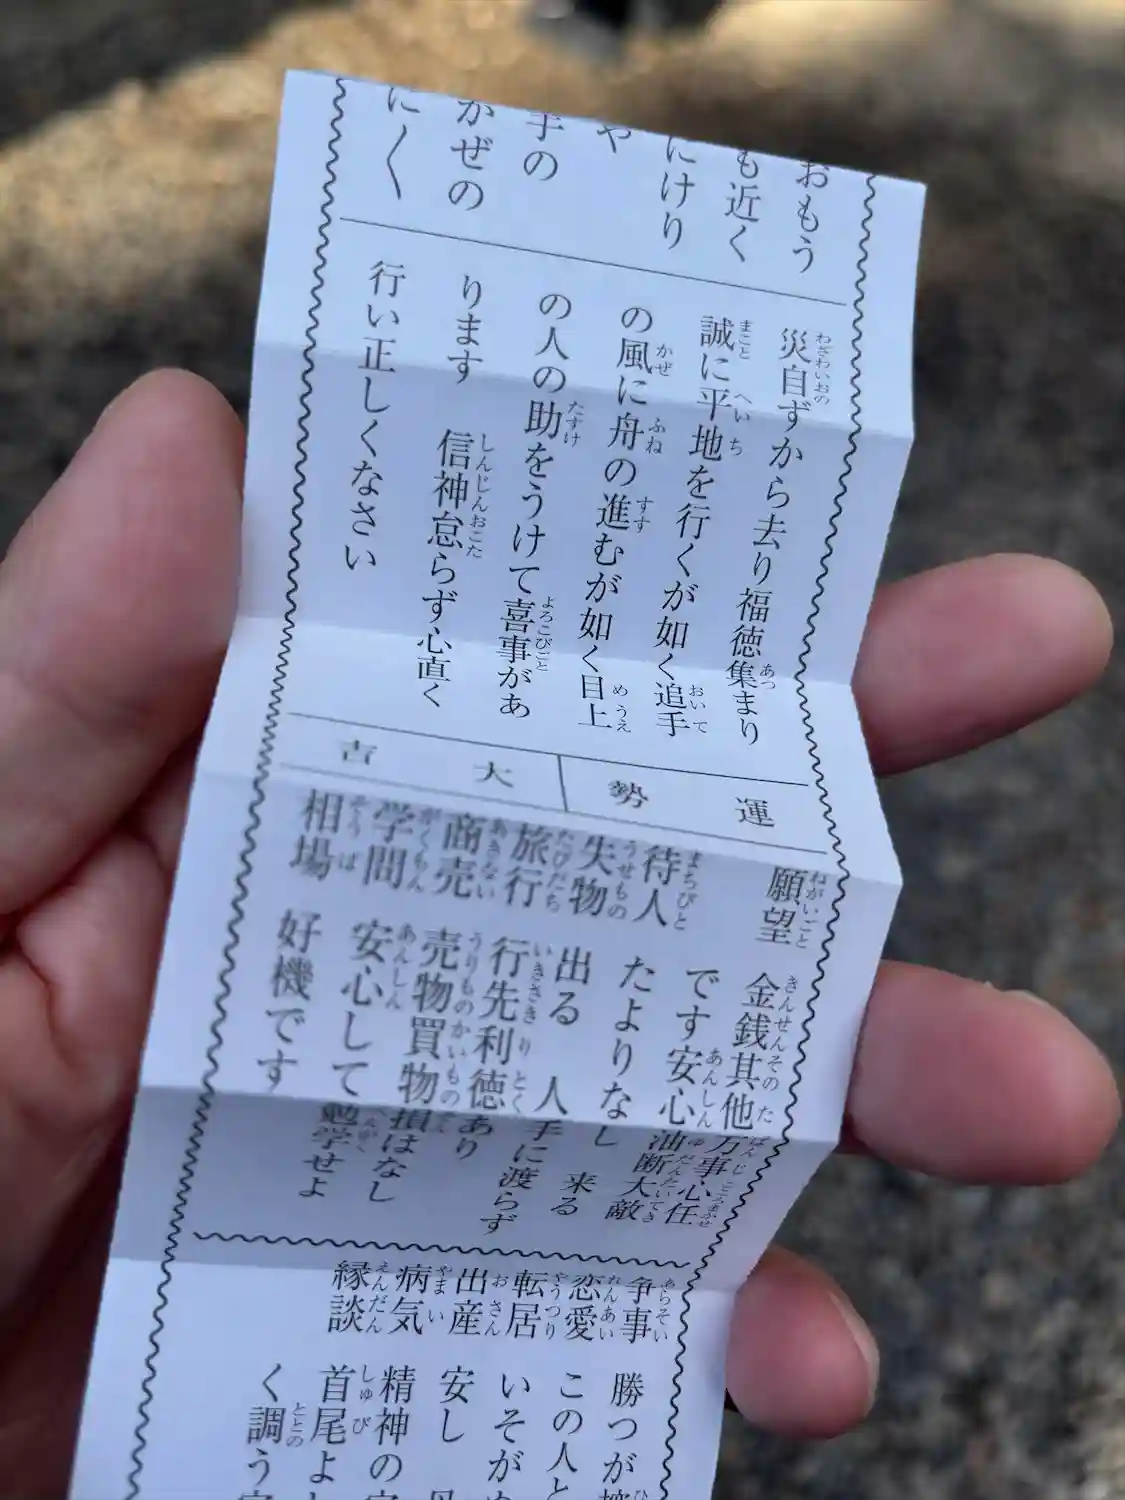 おもう
も近く
にけり
や
手の
かぜの
に〱
災自ずから去り福徳集まり
誠に平地を行くが如く追手
の風に舟の進むが如く目上
の人の助をうけて喜事があ
ります 信神怠らず心直く
行い正しくなさい
運勢 大吉
願望 金銭其他万事心任せ
です安心油断大敵
待人 たよりなし 来る
失物 出る 人手に渡らず
旅行 行先利徳あり
商売 売物買物損はなし
学問 安心して勉学せよ
相場 好機です
争事 勝つが
恋愛 この人と
転居 いそが
出産 安し
病気 精神の
縁談 首尾よ
く調う